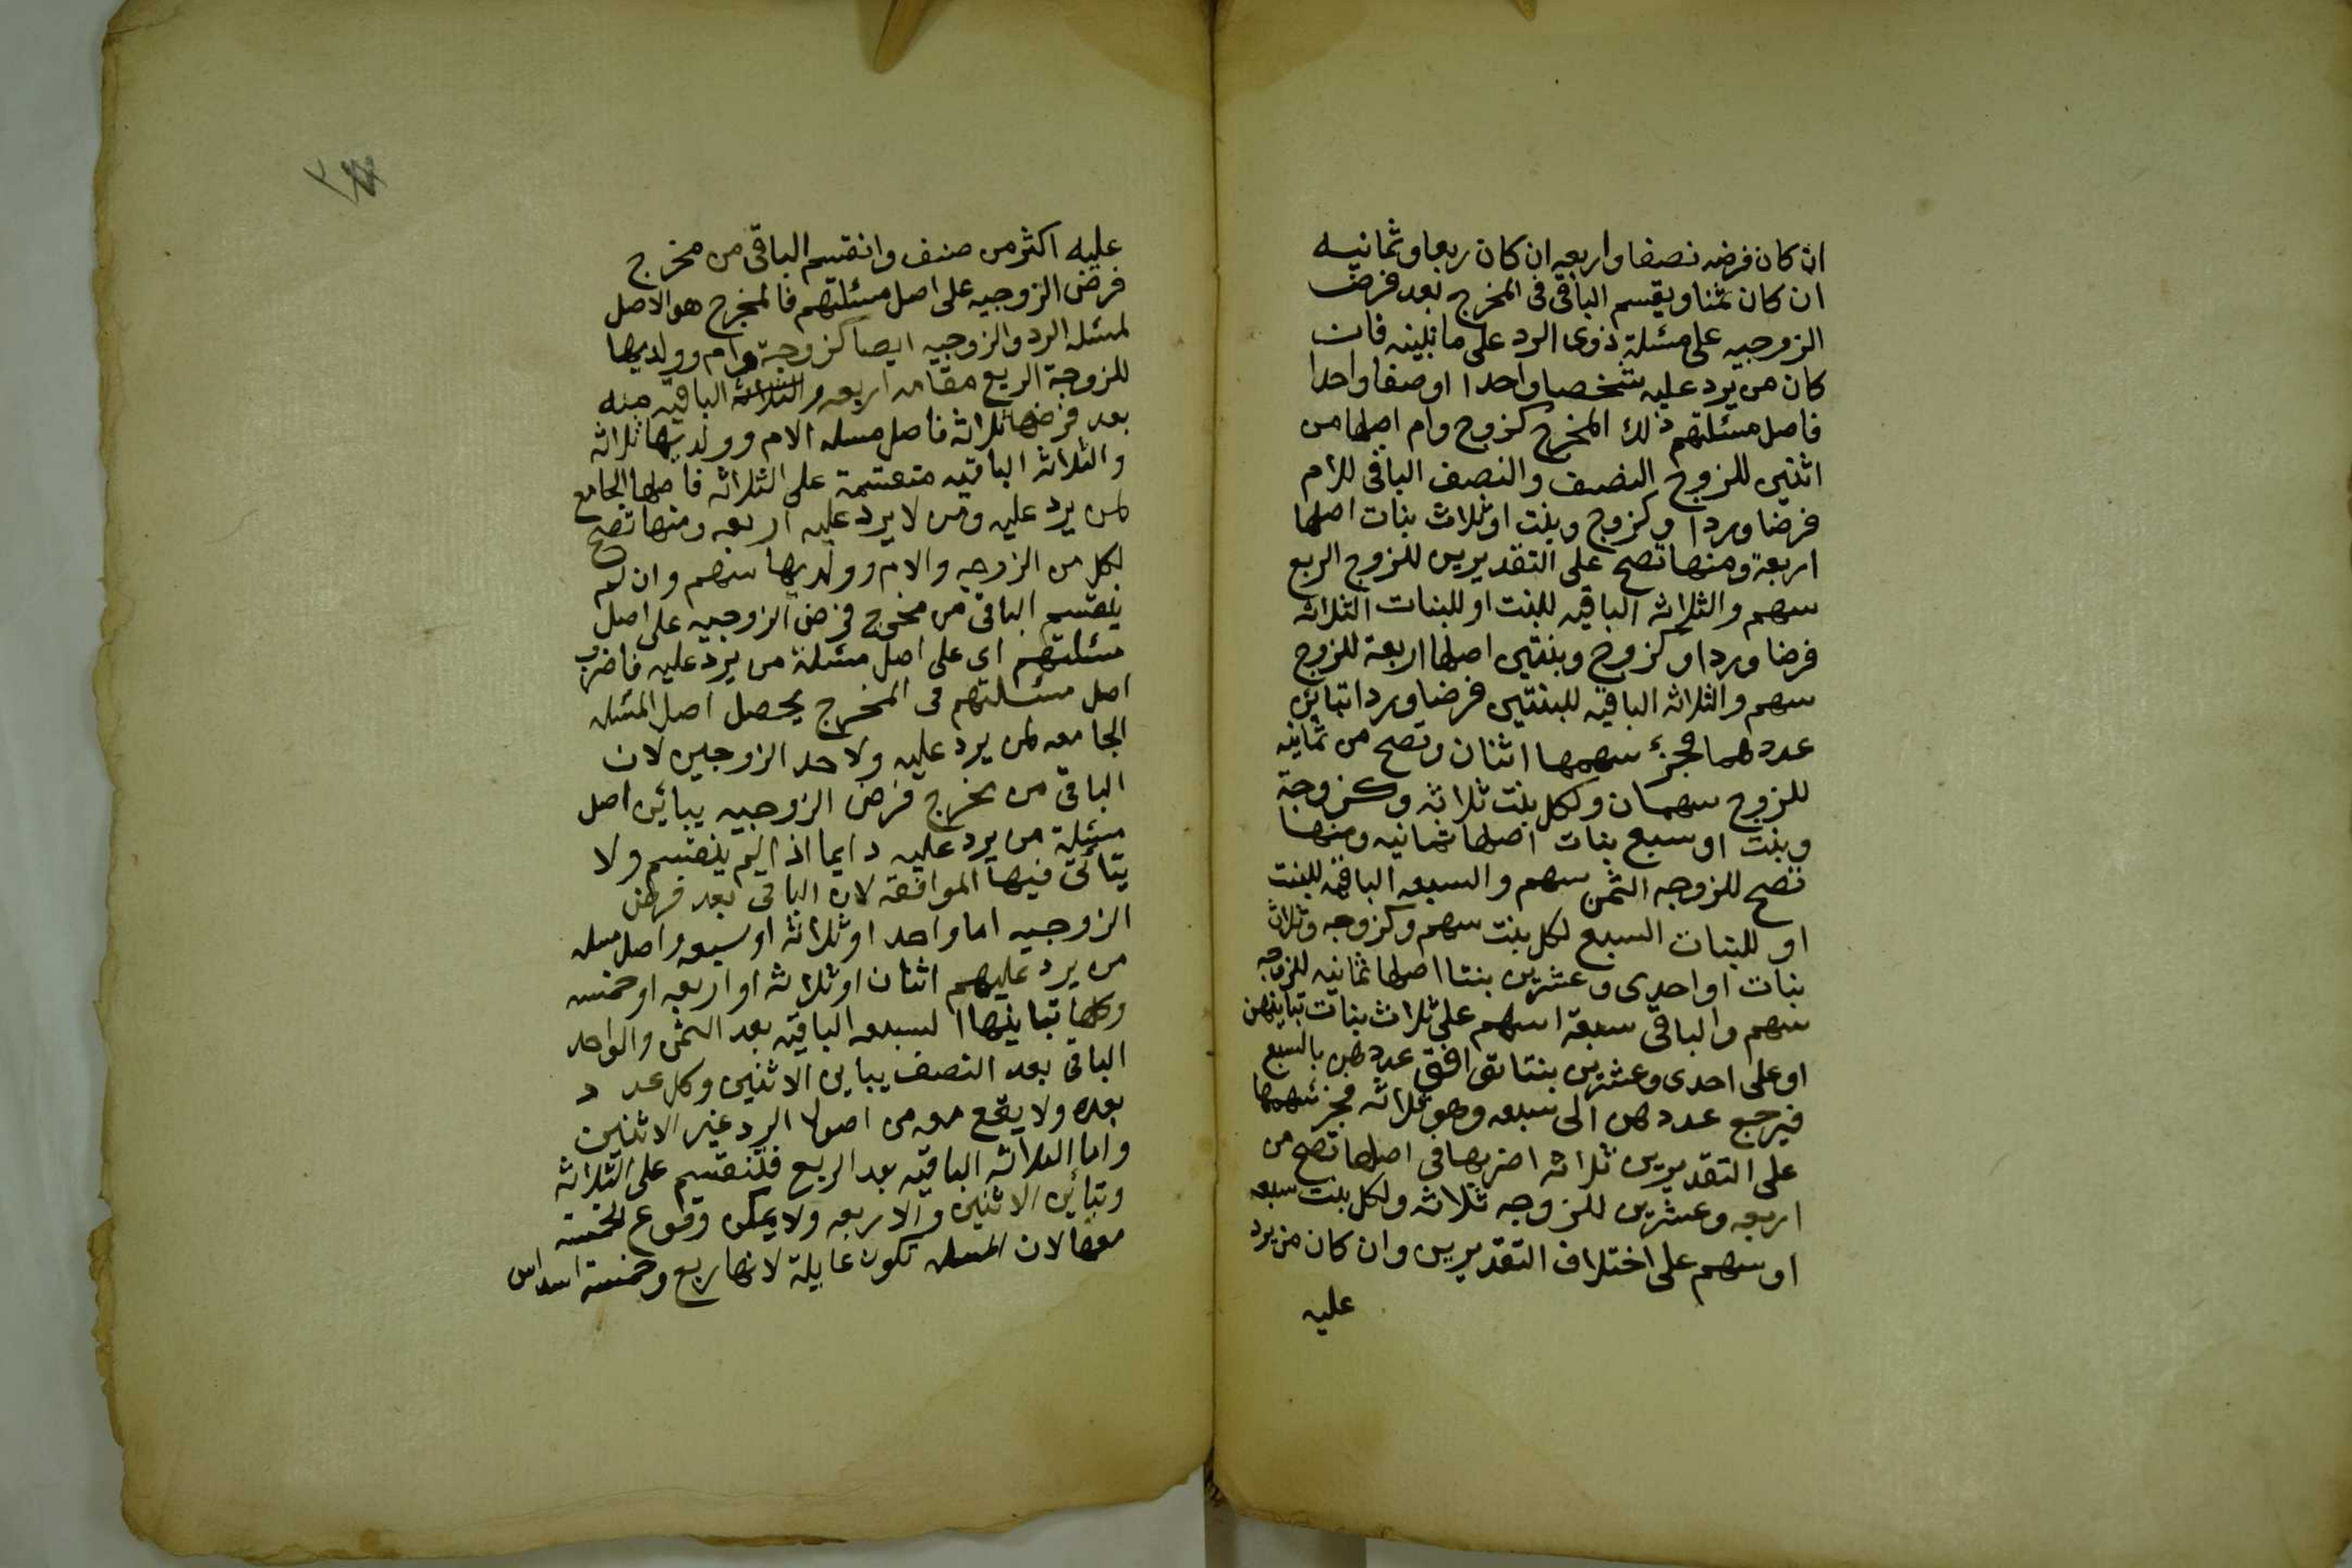 ان كان فرضه نصفا واربعه ان كان ربعا وثمانيه
ان كان ثمنا ويقسم الباقى فى المخرج بعد فرض
الزوجيه على مسئلة ذوى الرد على ما نبينه فان
كان من يرد عليه شخصا واحدا او صنفا واحدا
فاصل مسئلتهم ذلك المخرج كزوج وام اصلها من
اثنين للزوج النصف والنصف الباقى للام
فرضا وردا وكزوج وبنت او ثلاث بنات اصلها
اربعة ومنها تصح على التقديرين للزوج الربع
سهم والثلاثه الباقيه للبنت او للبنات الثلاثه
فرضا وردا وكزوج وبنتين اصلها اربعة للزوج
سهم والثلاثه الباقيه للبنتين فرضا وردا تباين
عددهما فجزء سهمها اثنان وتصح من ثمانيه
للزوج سهمان ولكل بنت ثلاثه وكزوجة
وبنت او سبع بنات اصلها ثمانيه ومنها
تصح للزوجه الثمن سهم والسبعه الباقيه للبنت
او للبنات السبع لكل بنت سهم وكزوجه وثلاث
بنات او احدى وعشرين بنتا اصلها ثمانيه للزوجه
سهم والباقى سبعة اسهم على ثلاث بنات تباينهن
او على احدى وعشرين بنتا توافق عددهن بالسبع
فيرجع عددهن الى سبعه وهو ثلاثه فجزء سهمها
على التقديرين ثلاثه اضربها فى اصلها تصح من
اربعه وعشرين للزوجه ثلاثه ولكل بنت سبعه
او سهم على اختلاف التقديرين وان كان من يرد
عليه
عليه اكثر من صنف وانقسم الباقى من مخرج
فرض الزوجيه على اصل مسئلتهم فالمخرج هو الاصل
لمسئله الرد والزوجيه ايضا كزوجة وام وولديها
للزوجة الربع مقامه اربعه والثلاثة الباقيه منه
بعد فرضها ثلاثه فاصل مسله الام وولديها ثلاثه
والثلاثه الباقيه منقسمة على الثلاثه فاصلها الجامع
لمن يرد عليه ومن لا يرد عليه اربعه ومنها تصح
لكل من الزوجه والام وولديها سهم وان لم
ينقسم الباقى من مخرج فرض الزوجيه على اصل
مسئلتهم اى على اصل مسئلة من يرد عليه فاضرب
اصل مسئلتهم فى المخرج يحصل اصل المسئله
الجامعه لمن يرد عليه ولاحد الزوجين لان
الباقى من مخرج فرض الزوجيه يباين اصل
مسئلة من يرد عليه دايما اذا لم ينقسم ولا
يتاتى فيها الموافقه لان الباقى بعد فرض
الزوجيه اما واحد او ثلاثه او سبعه واصل مسله
من يرد عليهم اثنان او ثلاثه او اربعه او خمسه
وكلها تباينها السبعه الباقيه بعد الثمن والواحد
الباقى بعد النصف يباين الاثنين وكل عدد
بعده ولا يقع معه من اصول الرد غير الاثنين
واما الثلاثه الباقيه بعد الربع فتنقسم على الثلاثه
وتباين الاثنين والاربعه ولا يمكن وقوع الخمسه
معها لان المسله تكون عايلة لانها ربع وخمسة اسداس